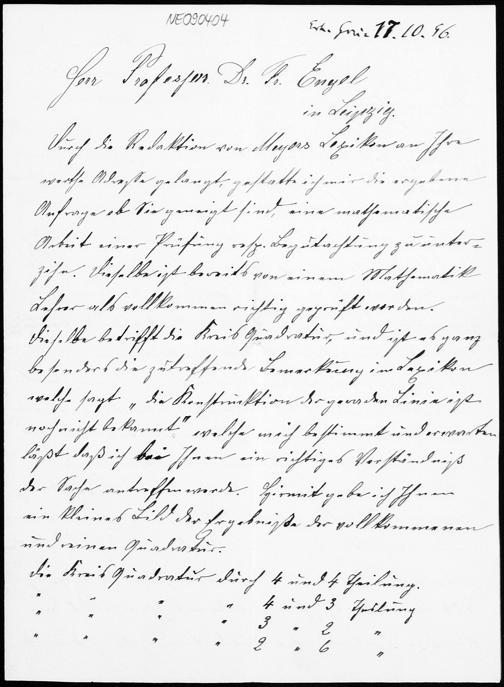 NE090404
17.10.96.
Herr Professor Dr. Fr. Engel
in Leipzig.
Durch die Redaktion von Meyers Lexikon an Ihre
werthe Adresse gelangt, gestatte ich mir die ergebene
Anfrage ob Sie geneigt sind, eine mathematische
Arbeit einer Prüfung resp. Begutachtung zu unter-
zihn. Dieselbe ist bereits von einem Mathematik
Lehrer als vollkommen richtig geprüft worden.
Dieselbe betrifft die Kreis Quadratur, und ist es ganz
besonders die zutreffende Bemerkung im Lexikon
welche sagt „die Konstruktion der geraden Linie ist
noch nicht bekannt" welche mich bestimmt und erwarten
läßt daß ich bei Ihnen ein richtiges Verständniß
der Sache antreffen werde. Hirmit gebe ich Ihnen
ein kleines Bild der Ergebniße der vollkommenen
und reinen Quadratur.
die Kreis Quadratur durch 4 und 4 Theilung.
" " " " 4 und 3 Theilung
" " " " 3 " 2 "
" " " " 2 " 6 "